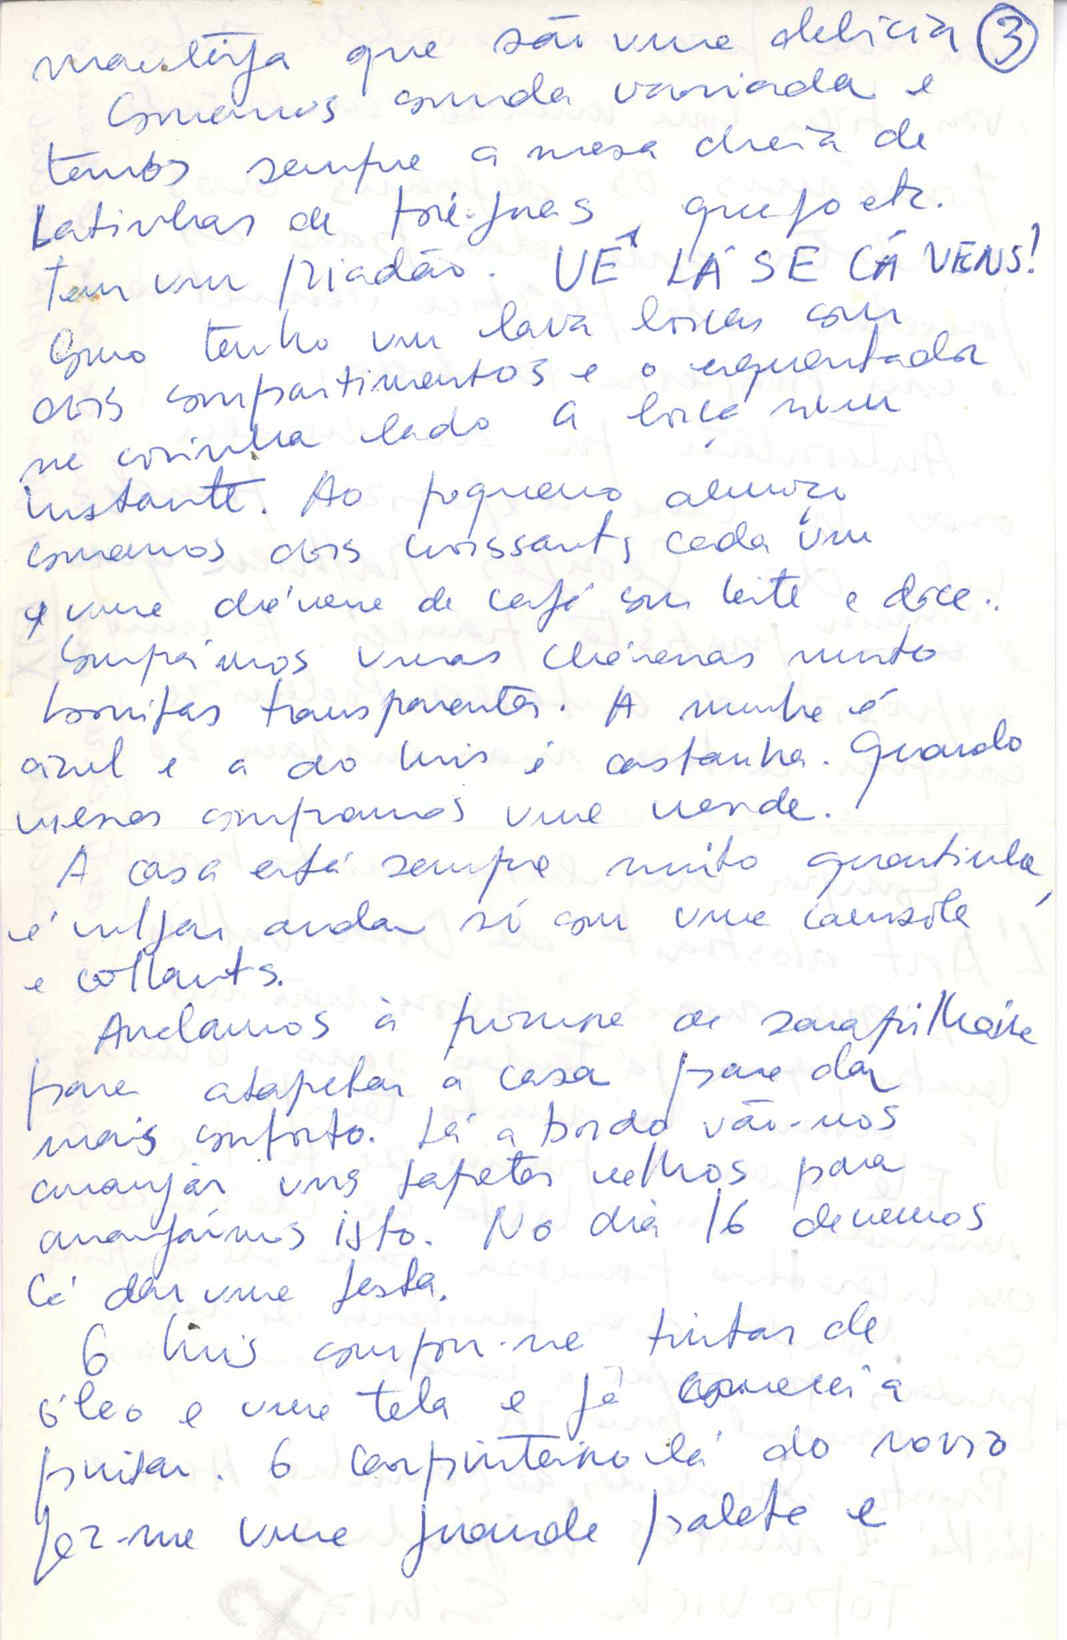 manteiga que são uma delicia 3
Comemos comida variada e
temos sempre a mesa cheia de
Latinhas de foie-gras, queijo etc.
tem um piadão. VÊ LÁ SE CÁ VENS!
Como tenho um lava loiças com
dois compartimentos e o esquentador
na cozinha lavo a loiça num
instante. Ao pequeno almoço
comemos dois croissants cada um
e uma chávena de café com leite e doce.
Comprámos umas chávenas muito
bonitas transparentes. A minha é
azul e a do Luis é castanha. Quando
vieres compramos uma verde.
A casa está sempre muito quentinha,
é vulgar andar só com uma camisola
e collants.
Andamos à procura de sarapilheira
para atapetar a casa para dar
mais conforto. Lá a bordo vão-nos
arranjar uns tapetes velhos para
arranjármos isto. No dia 16 devemos
cá dar uma festa.
O Luis comprou-me tintas de
óleo e uma tela e já comecei a
pintar. O carpinteiro lá do navio
fez-me uma grande palete e